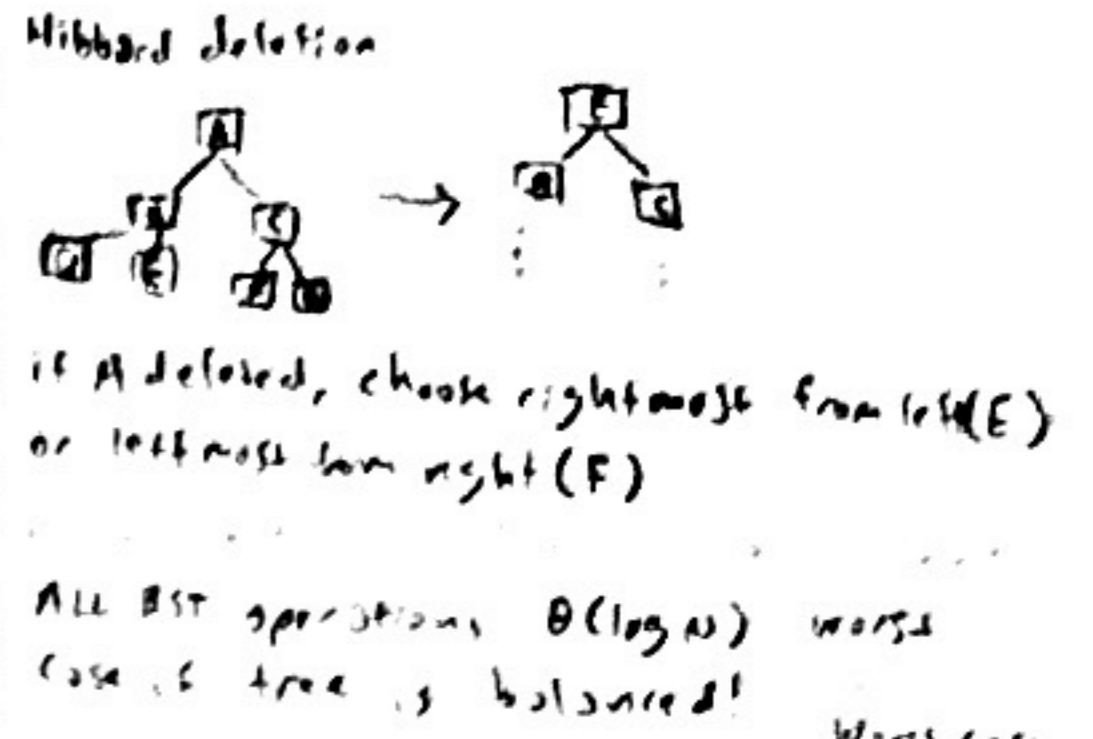 Hibbard deletion
A
E
B
C
C
D
E
F
if A deleted, choose rightmost from left(E)
or leftmost from right (F)
ALL BST operations θ(log N) worst
case if tree is balanced!
Worst case